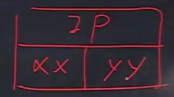 IP
xx yy